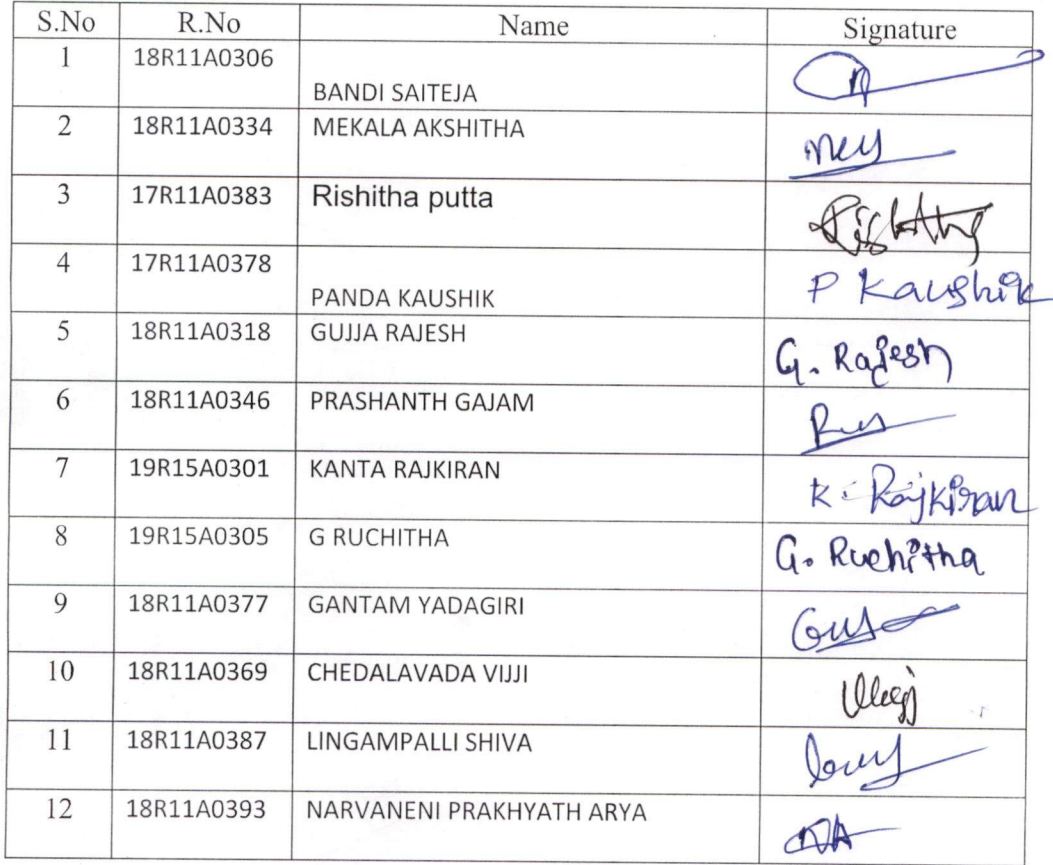 S.No R.No Name Signature
1 18R11A0306 BANDI SAITEJA
2 18R11A0334 MEKALA AKSHITHA
3 17R11A0383 Rishitha putta
4 17R11A0378 PANDA KAUSHIK P Kaushik
5 18R11A0318 GUJJA RAJESH G. Rajesh
6 18R11A0346 PRASHANTH GAJAM
7 19R15A0301 KANTA RAJKIRAN K. Rajkiran
8 19R15A0305 G RUCHITHA G. Ruchitha
9 18R11A0377 GANTAM YADAGIRI
10 18R11A0369 CHEDALAVADA VIJJI
11 18R11A0387 LINGAMPALLI SHIVA
12 18R11A0393 NARVANENI PRAKHYATH ARYA